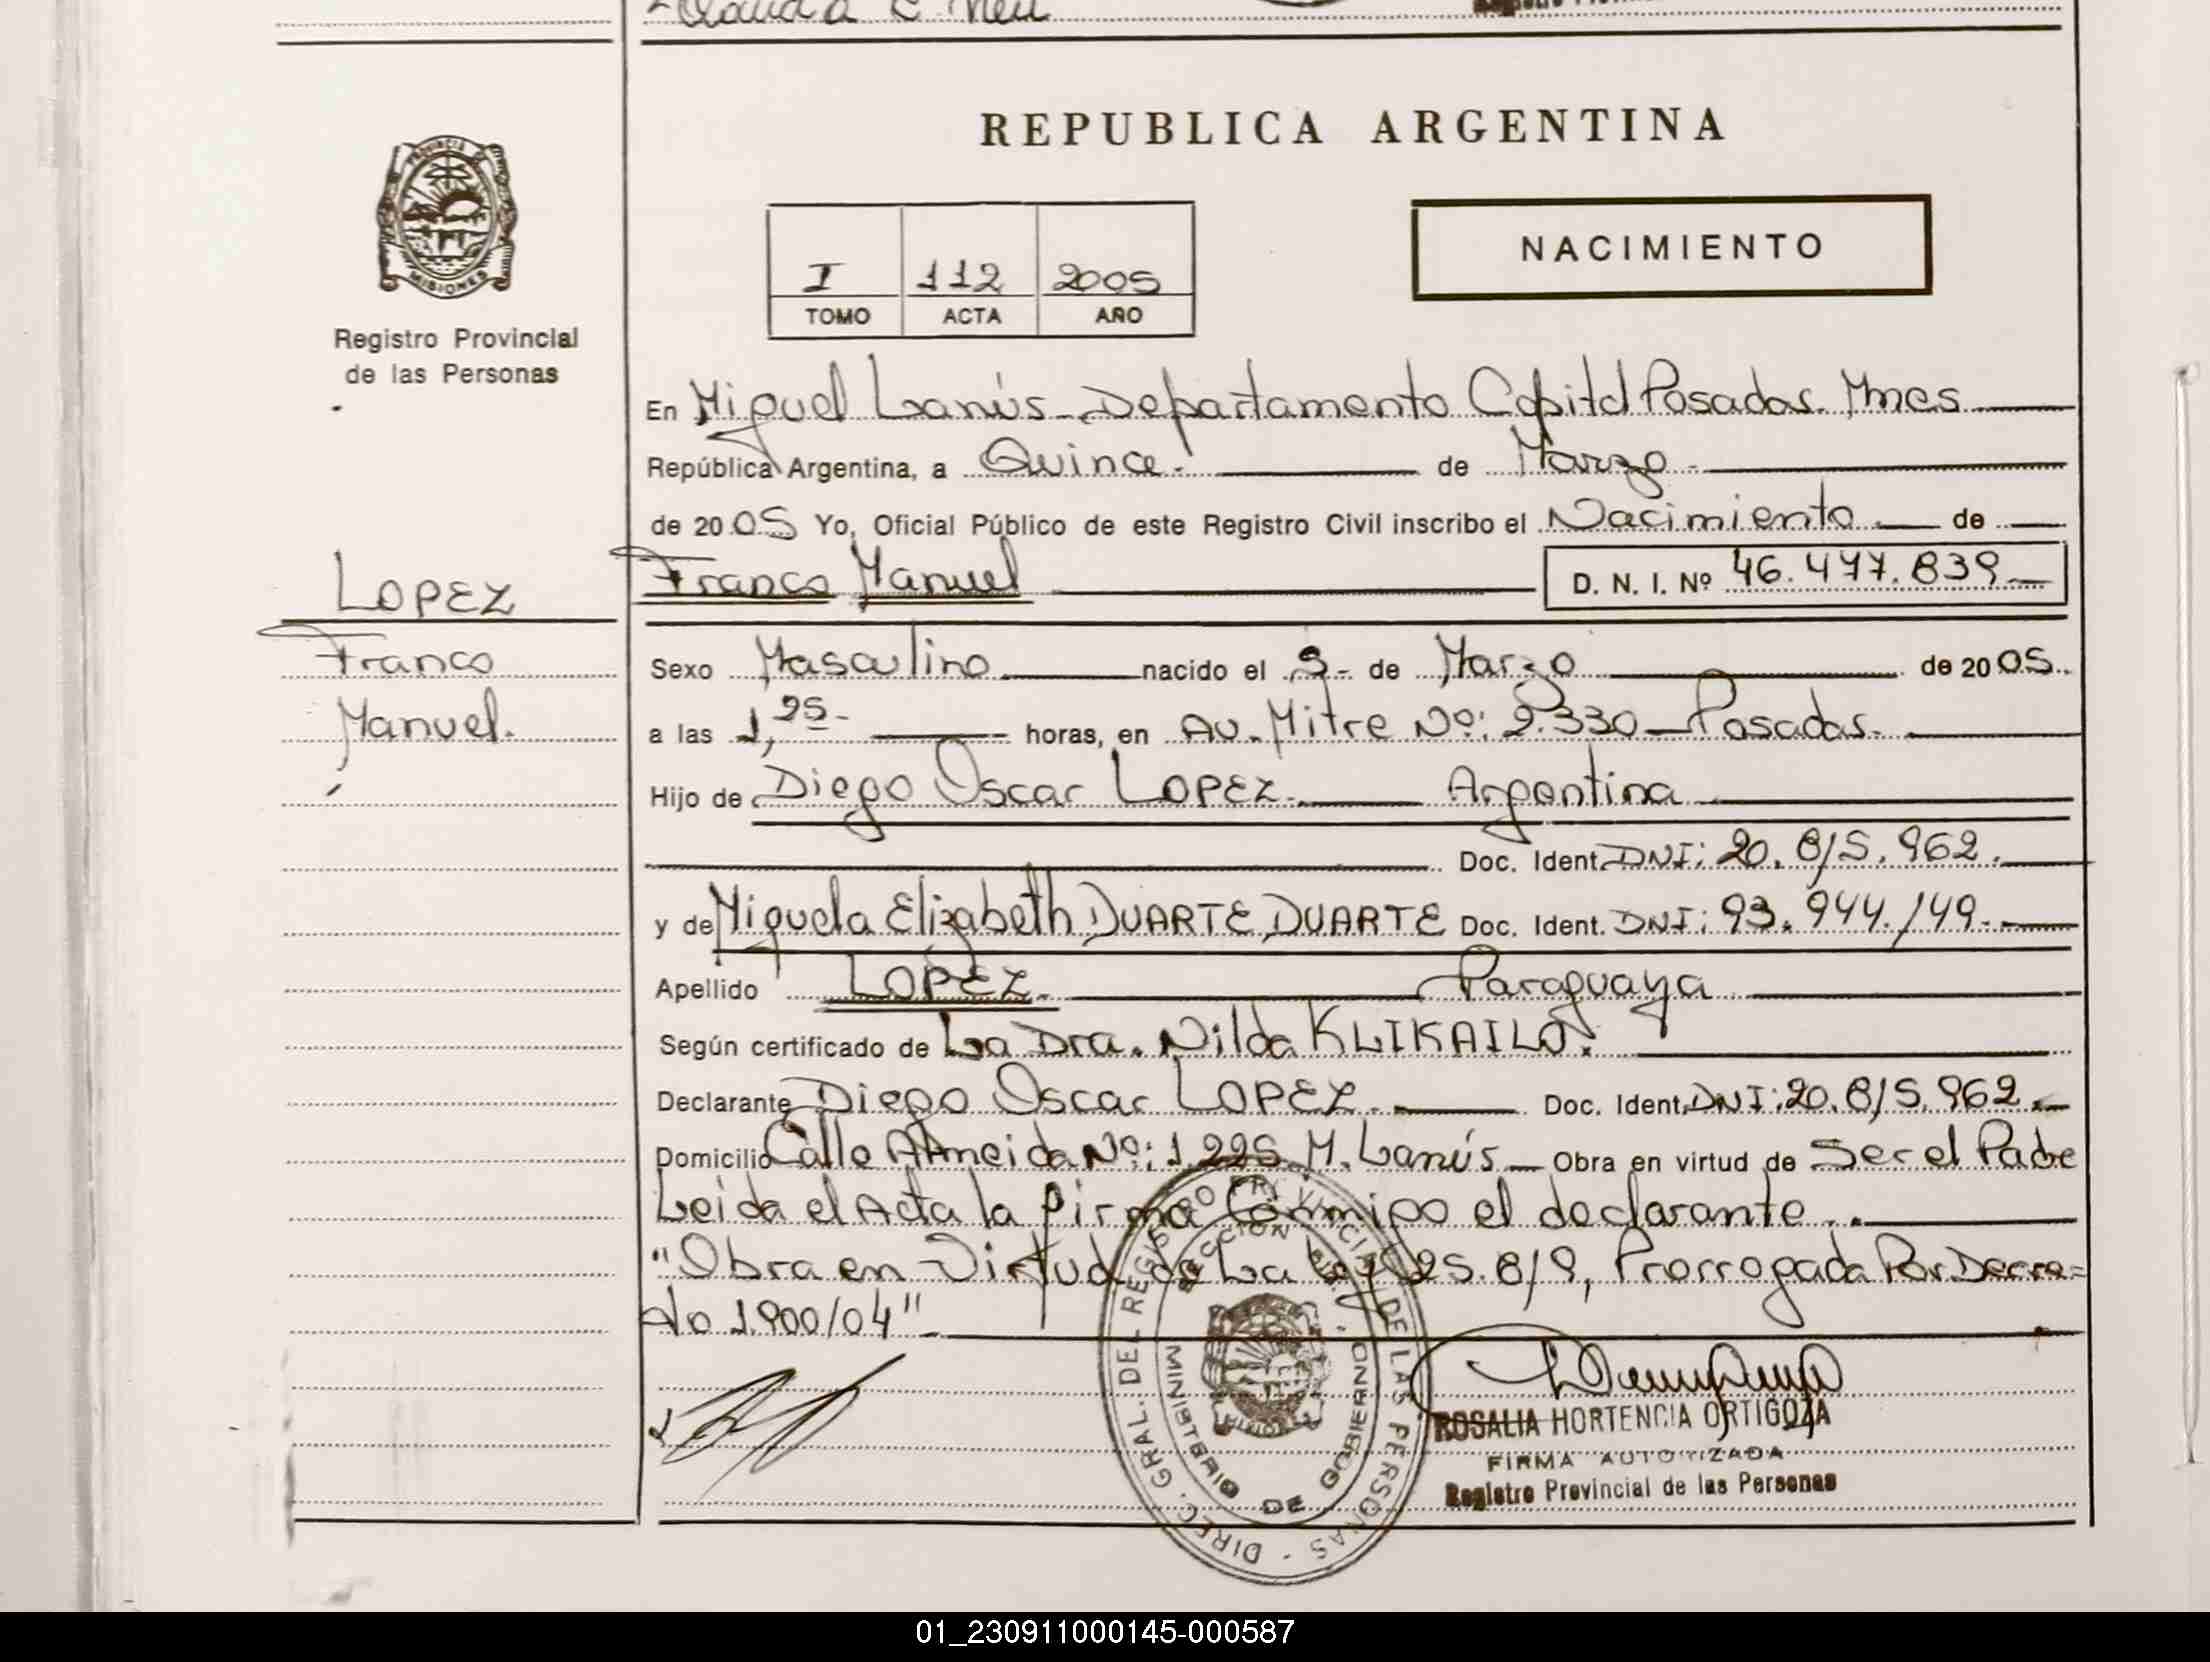 Claudia E. Neu
PROVINCIA DE
MISIONES
Registro Provincial
de las Personas
REPUBLICA ARGENTINA
NACIMIENTO
I 112 2005
TOMO ACTA AÑO
En Miguel Lanús - Departamento Capital Posadas. Mnes
República Argentina, a Quince. de Marzo.
de 2005 Yo, Oficial Público de este Registro Civil inscribo el Nacimiento de
LOPEZ Franco Manuel D. N. I. Nº 46.477.839
Franco Sexo Masculino nacido el 9- de Marzo de 2005
Manuel. a las 1,25- horas, en Av. Mitre Nº: 2.330 - Posadas.
Hijo de Diego Oscar LOPEZ. Argentina
Doc. Ident. DNI: 20.815.962.
y de Miguela Elizabeth DUARTE DUARTE Doc. Ident. DNI: 93.944.149.
Apellido LOPEZ. Paraguaya
Según certificado de La Dra. Nilda KLIKAILO.
Declarante Diego Oscar LOPEZ. Doc. Ident. DNI: 20.815.962.
Domicilio Calle Almeida Nº: 1.225. M. Lanús Obra en virtud de Ser el Padre
Leida el Acta la firma Conmigo el declarante.
"Obra en Virtud de La Ley 25.819, Prorrogada Por Decre=
to 1.900/04"
DIREC. GRAL. DEL REGISTRO PROVINCIAL DE LAS PERSONAS
MINISTERIO DE GOBIERNO
ROSALIA HORTENCIA ORTIGOZA
FIRMA AUTORIZADA
Registro Provincial de las Personas
01_230911000145-000587